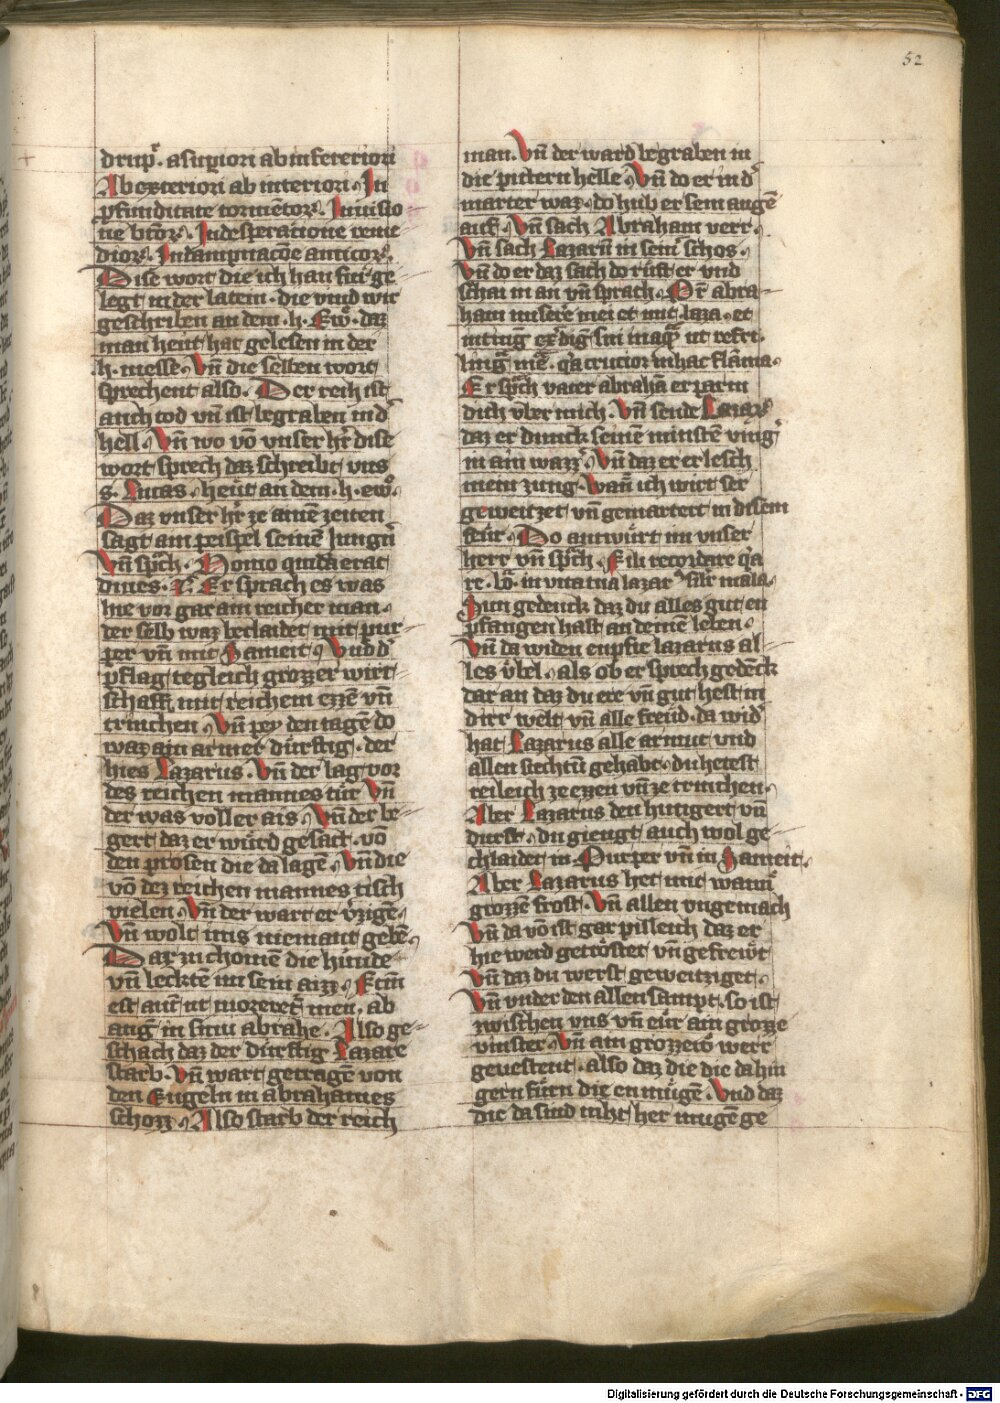 52
drup̄. asup̄iori ab infereriori
Ab exteriori ab interiori. In
p̄funditate tormētoꝝ. In uisio
ne btōꝝ. In desperacione reme
dioꝝ. In dampnacōe amicoꝝ.
Dise wort die ich han fúr ge
legt in der latein. die vind wir
geschriben an dem .h. Ewͦ. daz
man heut hat gelesen in der
.h. messe. Vn̄ die selben wort
sprechent also. Der reich ist
auch tod vn̄ ist begraben in dˀ
hell. Vn̄ wo vō vnser hr̄ dise
wort sprech daz schreibt vns
s. Lucas. heút an dem .h. ewͦ.
Daz vnser hr̄ ze ainē zeiten
sagt am peispel seinē Jungn̄
Vn̄ sp̄ch. Homo quidā erat
diues. Er sprach es was
hie vor gar ain reicher man.
der selb waz beclaidet mit pur
per vn̄ mit Sameit. Vnd dˀ
pflag tegleich grozzer wirt
schafft mit reichem ezzē vn̄
trinchen. Vn̄ pey den tagē do
waz ain armer dúrftig. der
hies Lazarus. Vn̄ der lag vor
des reichen mannes túr Vn̄
der was voller ais. Vn̄ der be
gert daz er wúrd gesact. vō
den prosen die da lagē. Vn̄ die
vō dez reichen mannes tisch
vielen. Vn̄ der wart er v̄zigē
Vn̄ wolt ims niemant gebē.
Dar zu chomē die hunde
vn̄ lecktē im sein aizz. Fcm̄
est aut̄ ut moreret̄ men. ab
anḡ in sinu abrahe. Also ge
schach daz der dúrftig Lazare
starb. Vn̄ wart getragē von
den Engeln in abrahames
schozz. Also starb der reich
man. Vn̄ der ward begraben in
die pittern helle. Vn̄ do er in dˀ
marter waz. do hub er sein augē
auf. Vn̄ sach Abraham verr.
Vn̄ sach Lazarū in seinˀ schos.
Vn̄ do er daz sach do rúft er vnd
schai in an vn̄ sprach. Pr̄ abra
ham misere mei et mit. laza. et
Er sp̄ch vater abrahā erparm
dich v̊ber mich. Vn̄ sende Lazaꝝ
daz er dunck seinē minstē vingˀ
in ain wazzˀ. Vn̄ daz er erlesch
mein zung. Wan̄ ich wirt ser
geweitzet vn̄ gemartert in disem
feúr. Do antwúrt im vnser
herr vn̄ sp̄ch. Fili recordare q̄a
Nun gedenck daz du alles gut en
pfangen hast an deinē leben.
Vn̄ da widen enpfie lazarus al
les v̊bel. als ob er sprech gedēck
dar an daz du ere vn̄ gut hest in
dirr welt vn̄ alle freúd. da widˀ
hat Lazarus alle armut vnd
allen siechtū gehabt. du hetest
reileich ze ezzen vn̄ ze trinchen.
Aber Lazarus den hungert vn̄
durst. du giengt auch wol ge
chlaidet in Purper vn̄ in Sameit.
Aber Lazarus het nit wann̄
grozzē frost. Vn̄ allen vngemach
Vn̄ da vō ist gar pilleich daz er
hie werd getröstet vn̄ gefrewt
vn̄ daz du werst geweitziget.
Vn̄ vnder den allen sampt. so ist
zwischen vns vn̄ eúr ain grozze
vinster. Vn̄ ain grozzew werr
geuestent. also daz die die da hin
gern fúrn die enmúgē. Vnd daz
die da sind niht her mugē ge
Digitalisierung gefördert durch die Deutsche Forschungsgemeinschaft - DFG